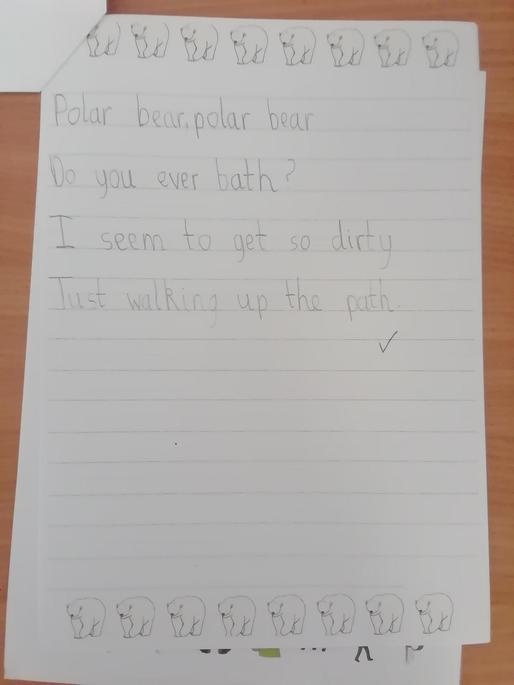 Polar bear, polar bear
Do you ever bath?
I seem to get so dirty
Just walking up the path.